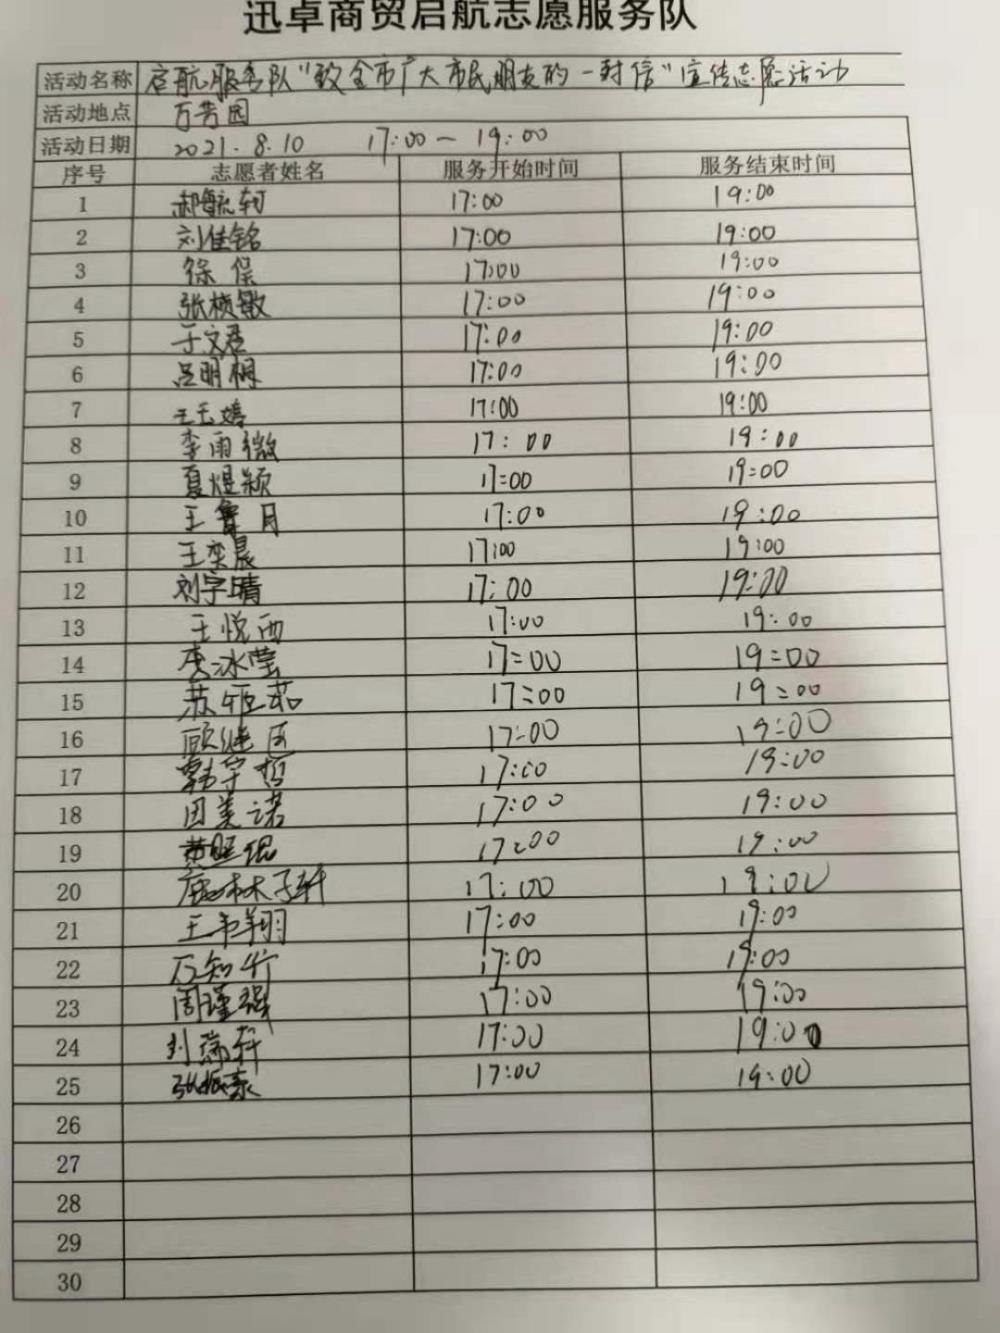 迅卓商贸启航志愿服务队
活动名称 启航服务队"致全市广大市民朋友的一封信"宣传志愿活动
活动地点 万芳园
活动日期 2021.8.10 17:00—19:00
序号 志愿者姓名 服务开始时间 服务结束时间
1 郝毓轲 17:00 19:00
2 刘佳铭 17:00 19:00
3 徐 俣 17:00 19:00
4 张桢敏 17:00 19:00
5 于文君 17:00 19:00
6 吕明桐 17:00 19:00
7 王玉婷 17:00 19:00
8 李雨微 17:00 19:00
9 夏煜颖 17:00 19:00
10 王 月 17:00 19:00
11 王奕晨 17:00 19:00
12 刘宇晴 17:00 19:00
13 王悦西 17:00 19:00
14 李冰莹 17:00 19:00
15 苏雅茹 17:00 19:00
16 顾继匹 17:00 19:00
17 韩宇哲 17:00 19:00
18 田美诺 17:00 19:00
19 黄煜琨 17:00 19:00
20 庞林子轩 17:00 19:00
21 王韦翔 17:00 19:00
22 石知行 17:00 19:00
23 周瑾强 17:00 19:00
24 刘瑞轩 17:00 19:00
25 张振豪 17:00 19:00
26
27
28
29
30